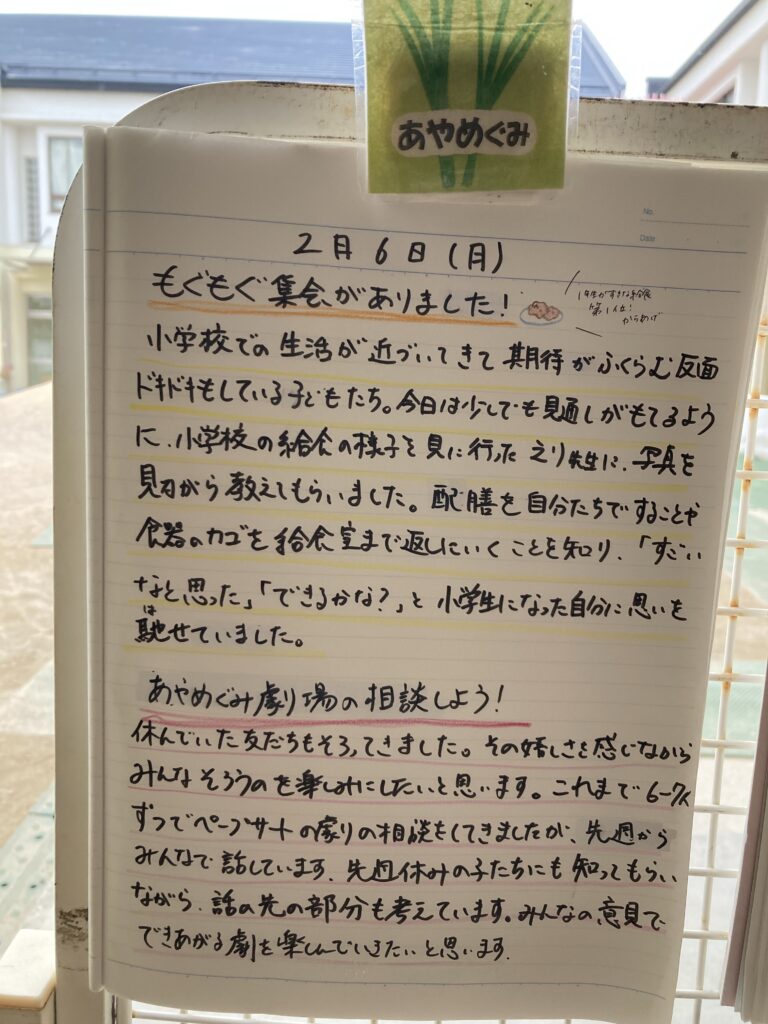 あやめぐみ
No.
Date
2月6日(月)
もぐもぐ集会がありました!
1年生がすきな給食
第1位!
からあげ
小学校での生活が近づいてきて期待がふくらむ反面
ドキドキもしている子どもたち。今日は少しでも見通しがもてるよう
に、小学校の給食の様子を見に行った えり先生に、写真を
見ながら教えてもらいました。配膳を自分たちですることや
食器のカゴを給食室まで返しにいくことを知り、「すごい
なと思った」「できるかな?」と小学生になった自分に思いを
は
馳せていました。
あやめぐみ劇場の相談しよう!
休んでいた友だちもそろってきました。その嬉しさを感じながら
みんなそろうのを楽しみにしたいと思います。これまで6-7人
ずつでペープサートの劇の相談をしてきましたが、先週から
みんなで話しています。先週休みの子たちにも知ってもらい
ながら、話の先の部分も考えています。みんなの意見で
できあがる劇を楽しんでいきたいと思います。